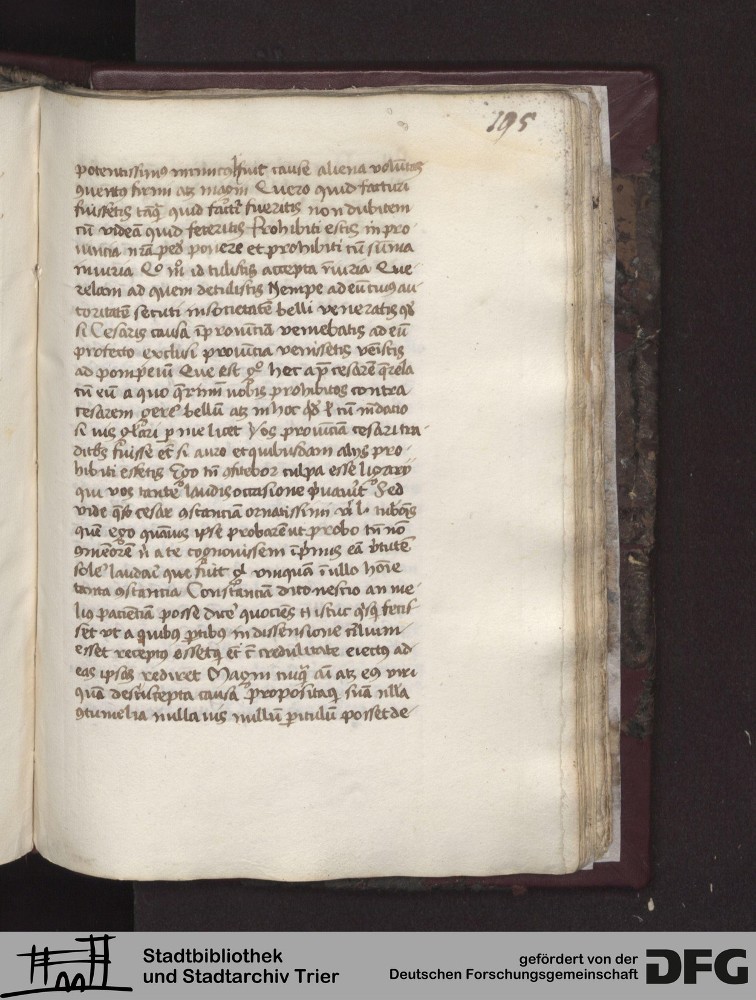 195
potentissimus inimicus fuit cause aliena voluntas
conuentus firmi atque magni Quero quid facturi
fuissetis quid facturi fueritis non dubitem
cum videam quid feceritis Prohibiti estis in pro
uincia vestra pedem ponere et prohibiti cum summa
iniuria Quo modo id tulistis accepta iniurie Que
relam ad quem detulistis Nempe ad eum cuius au
toritatem secuti in societatem belli veneratis quod
si Cesaris causa in prouinciam veniebatis ad eum
profecto exclusi prouincia venissetis venistis
ad pompeium Que est ergo hec apud cesarem querela
cum eum a quo queritimini vobis prohibitos contra
cesarem gerere bellum atque in hoc quidem vel cum mendacio
si vis gloriari per me licet Vos prouinciam cesari tra
dituros fuisse etsi a varo et quibusdam aliis pro
hibiti essetis Ego tamen confitebor culpam esse ligarii
qui vos tante laudis occasione priuauit Sed
vide queso cesar constantiam ornatissimi viri
quam ego quamuis ipse probarem ut probo tamen non
commemorem nisi a te cognouissem in primis eam virtutem
solere laudari que fuit vnquam in ullo homine
tanta constantia Constantiam dico nescio an me
lius patientiam possem dicere quociens istuc quisque fecis
set vt a quibus partibus in dissensione ciuium
esset receptus essetque et cum credulitate eiectus ad
eas ipsas rediret Magni cuiusdam animi atque eius viri
quam de suscepta causa propositaque sententia nulla
contumelia nulla uis nullum periculum posset de
Stadtbibliothek
und Stadtarchiv Trier
gefördert von der
Deutschen Forschungsgemeinschaft
DFG